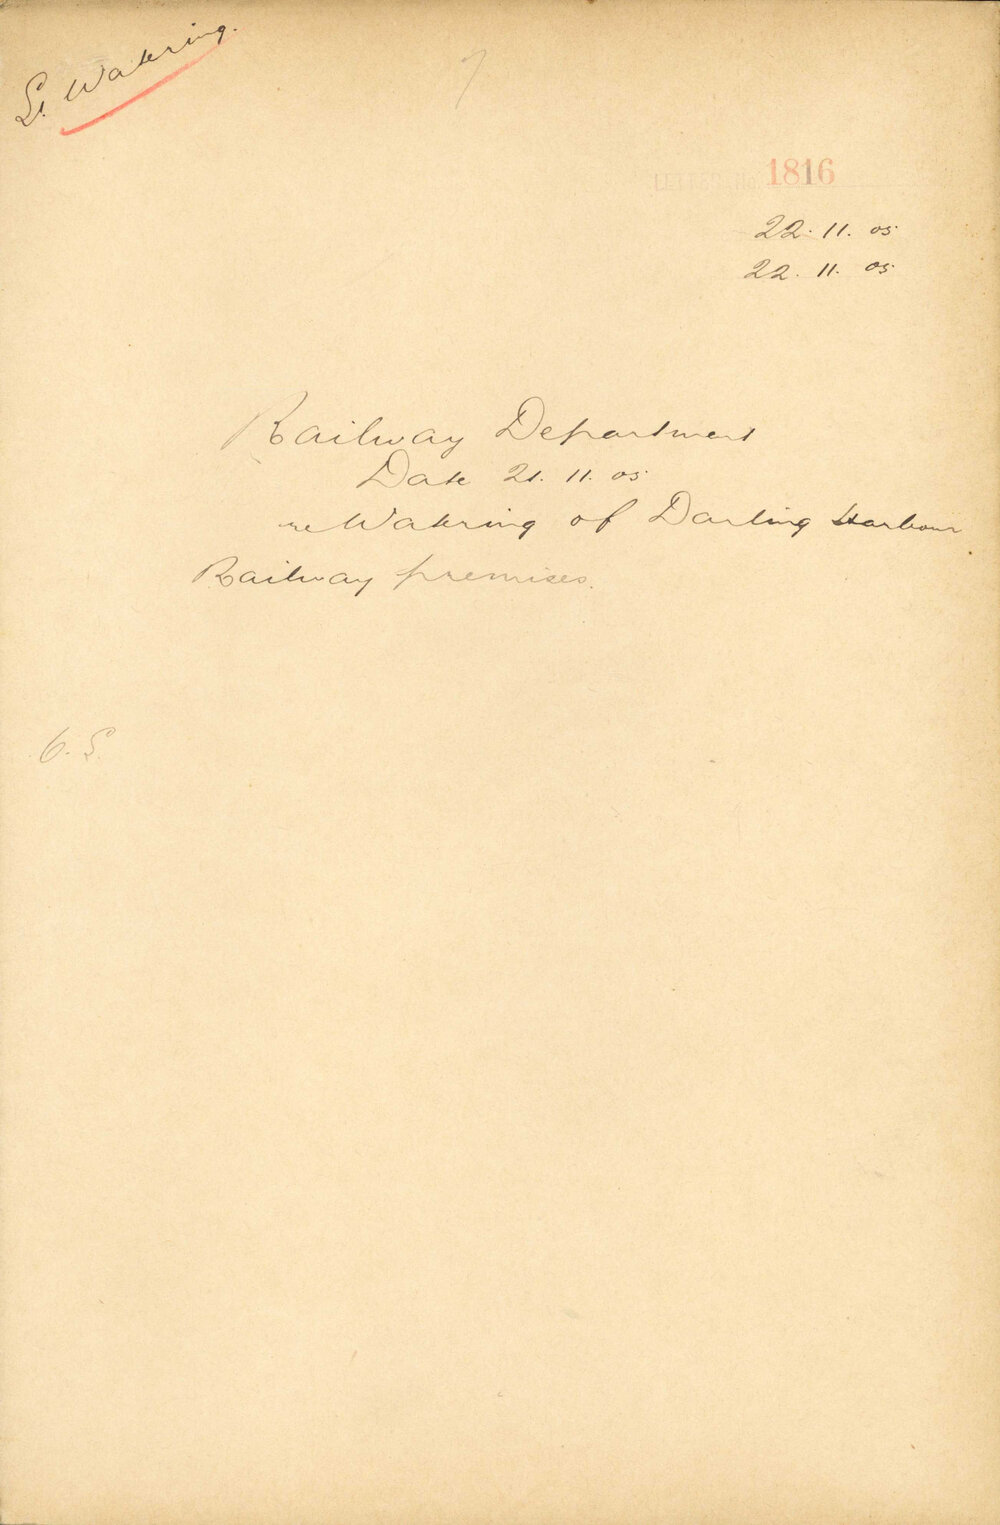 St. Watering.
7
LETTER No. 1816
22. 11. 05
22. 11. 05
Railway Department
Date 21. 11. 05
re Watering of Darling Harbour
Railway premises.